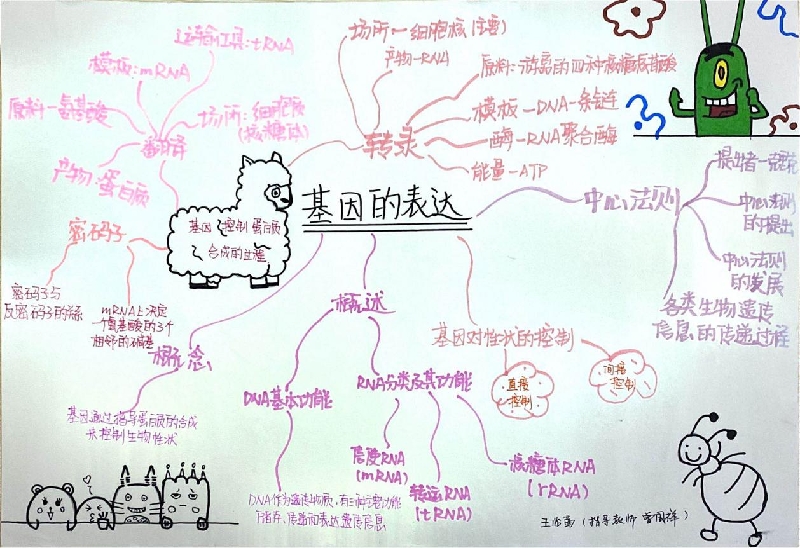 基因的表达
转录
场所－细胞核(主要)
产物－RNA
原料：游离的四种核糖核苷酸
模板－DNA一条链
酶－RNA聚合酶
能量－ATP
中心法则
提出者－克里克
中心法则
的提出
中心法则
的发展
各类生物遗传
信息的传递过程
基因对性状的控制
直接
控制
间接
控制
概述
DNA基本功能
DNA作为遗传物质，有三种主要功能
RNA分类及其功能
信使RNA
(mRNA)
转运RNA
(tRNA)
核糖体RNA
(rRNA)
概念
基因通过指导蛋白质的合成
来控制生物性状
基因 控制蛋白质
合成的过程
翻译
运输工具：tRNA
模板：mRNA
原料－氨基酸
场所：细胞质
(核糖体)
产物：蛋白质
密码子
密码子与
反密码子的关系
mRNA上决定
一个氨基酸的3个
相邻的碱基
(指导教师